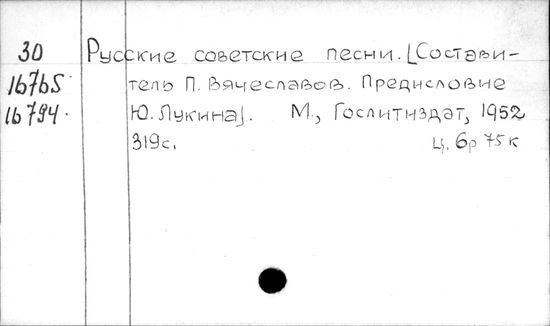 30 Русские советские песни. [Состави-
16765 тель П. Вячеславов. Предисловие
16794. Ю. Лукина]. М., Гослитиздат, 1952
319с. ц. 6р 75к